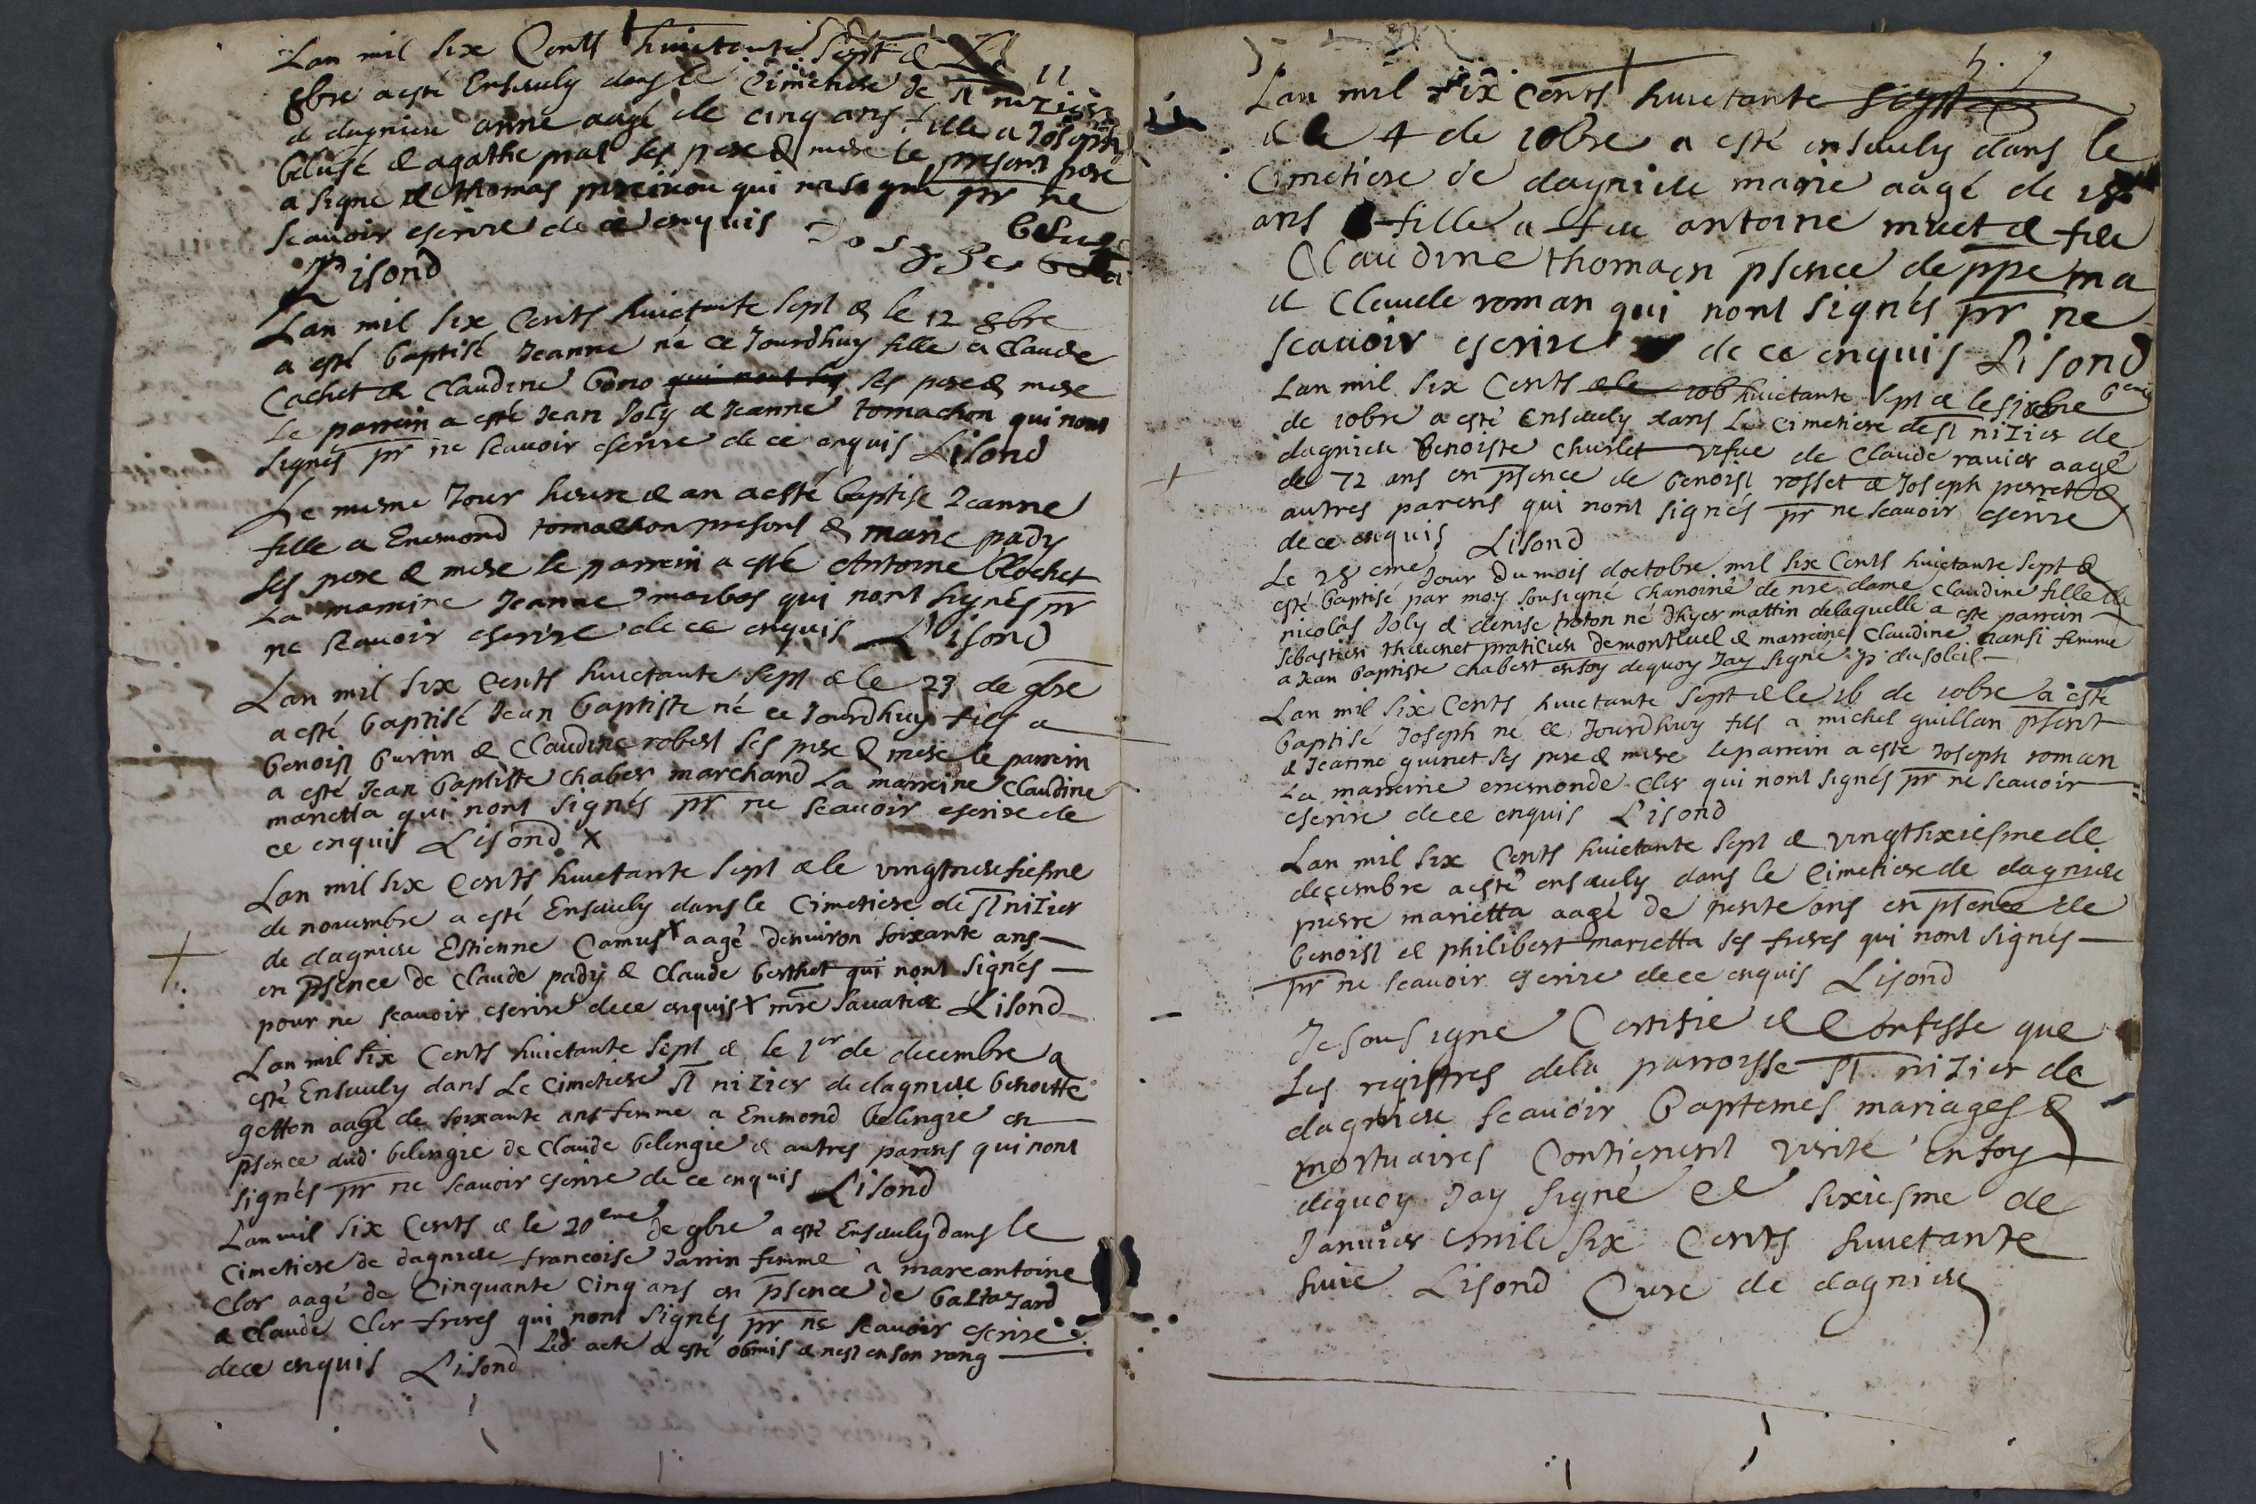 Lan mil six Cents huictante sept & Le 11
8bre a esté Ensavely dans le Cimetiere de st nizier
de dagnieu anne aagé de cinq ans fille a Joseph
beluse & agathe prat ses pere & mere le present pere
a signe & thomas qui na signe pr ne
scavoir escrire de ce enquis
Lisond
Lan mil six Cents huictante sept & le 12 8bre
a esté baptisé Jeanne né ce Jourdhuy fille a Claude
Cachet & Claudine bono qui nont sig ses pere & mere
Le parrein a esté Jean Joly & Jeanne tomachon qui nont
signés pr ne scavoir escrire de ce enquis Lisond
Le mesme Jour heure & an a esté baptise Jeanne
fille a Enemond tomachon presens & marie pady
ses pere & mere le parrein a esté Antoine blochet
La marreine Jeanne morbos qui nont signés pr
ne scavoir escrire de ce enquis Lisond
Lan mil six Cents huictante sept & le 23 de 9bre
a esté baptisé Jean baptiste né ce Jourdhuy fils a
benoist burtin & Claudine robert ses pere & mere le parrein
a esté Jean baptiste Chaber marchand La marreine Claudine
marietta qui nont signés pr ne scavoir escrire de
ce enquis Lisond x
Lan mil six Cents huictante sept & le vingttroisiesme
de novembre a esté Ensavely dans le Cimetiere de st nizier
de dagnieu Estienne Camus x aagé denviron soixante ans
en psence de Claude pady & Claude berthet qui nont signés
pour ne scavoir escrire de ce enquis x mre savatier Lisond
Lan mil six Cents huictante sept & le 1er de decembre a
esté Ensavely dans Le Cimetiere st nizier de dagnieu benoitte
getton aagé de soixante ans femme a Enemond belingie en
psence dud. belingie de Claude belingie & autres parens qui nont
signés pr ne scavoir escrire de ce enquis Lisond
Lan mil six Cents & le 20eme de 9bre a esté Ensavely dans le
Cimetiere de dagnieu francoise Jannin femme a marcantoine
Clor aagé de Cinquante Cinq ans en psence de baltazard
& Claude Clor freres qui nont signés pr ne scavoir escrire
de ce enquis Lisond Led acte a esté obmis & nest en son rang
Lan mil six Cents huictante sept
& le 4 de 10bre a esté ensavely dans le
Cimetiere de dagnieu marie aagé de
ans fille a feu antoine muet & feue
Claudine thoma en psence de ppe ma
& Claude roman qui nont signés pr ne
scavoir escrire de ce enquis Lisond
Lan mil six Cents & le 10b huictante sept & le sixiesme
de 10bre a esté Ensavely dans Le Cimetiere de st nizier de
dagnieu benoiste Churlet vefve de Claude ravier aagé
de 72 ans en psence de benoist rosset & Joseph perret &
autres parens qui nont signés pr ne scavoir escrire
de ce enquis Lisond
Le 28eme Jour du mois doctobre mil six Cents huictante sept a
esté baptisé par moy sousigné Chanoine de nre dame Claudine fille de
nicolas Joly & denise troton né dhyer mattin de laquelle a esté parrein
sebastien thevenet praticien de montluel & marreine Claudine femme
a Jean baptiste Chabert en foy dequoy Jay signé p. du soleil
Lan mil six Cents huictante sept & le 16 de 10bre a esté
baptisé Joseph né ce Jourdhuy fils a michel guillan psent
& Jeanne guinet ses pere & mere le parrein a esté Joseph roman
La marreine enemonde Clor qui nont signés pr ne scavoir
escrire de ce enquis Lisond
Lan mil six Cents huictante sept & vingtsixiesme de
decembre a esté ensavely dans le Cimetiere de dagnieu
pierre marietta aagé de trente ans en psence de
benoist & philibert marietta ses freres qui nont signés
pr ne scavoir escrire de ce enquis Lisond
Je sousigne Certifie & Confesse que
Les registres de la parroisse st nizier de
dagnieu scavoir baptemes mariages &
mortuaires Contienent verité En foy
dequoy Jay signé ce sixiesme de
Janvier mil six Cents huictante
huic Lisond Cure de dagnieu